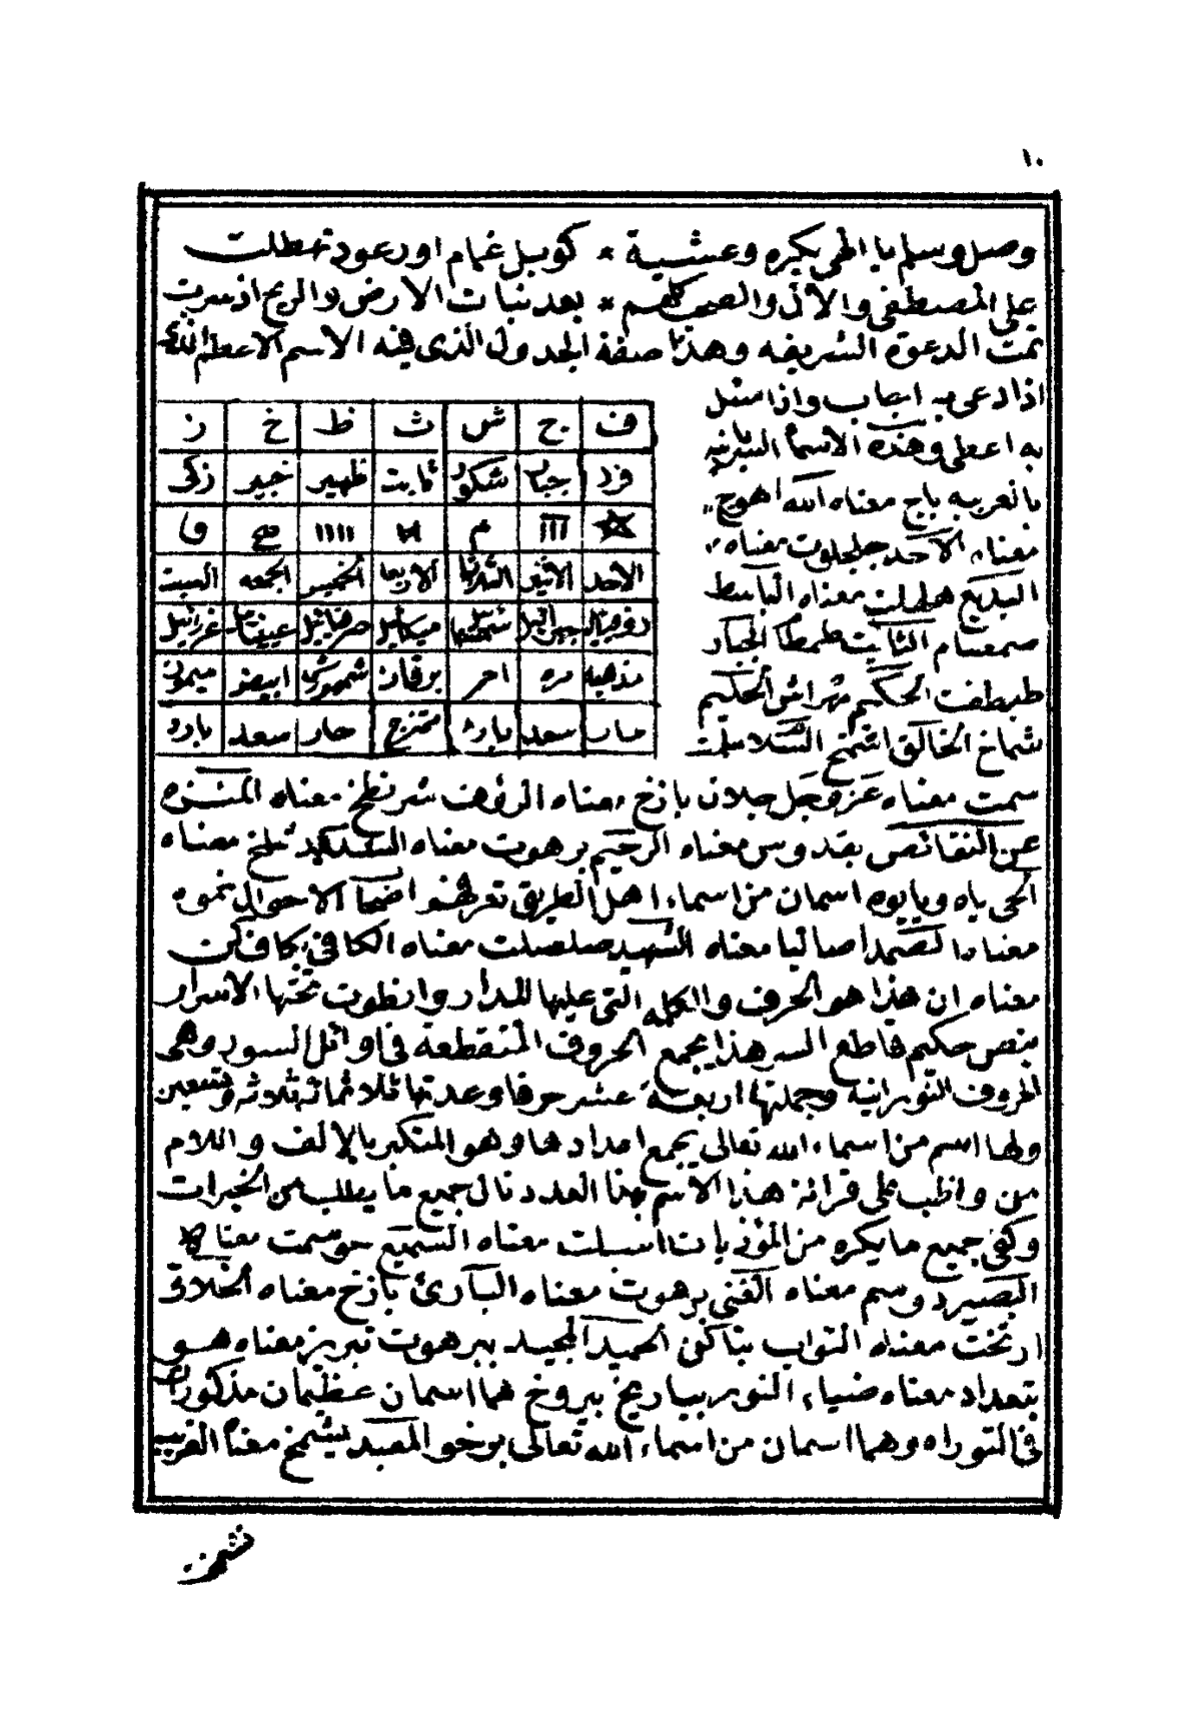 ١٠
وصل وسلم يا الهي بكره وعشية * كوبل غمام اورعود تهطلت
على المصطفى والآل والصحب كلهم * بعد نبات الارض والريح اذ سرت
تمت الدعوة الشريفه وهذا صفة الجدول الذى فيه الاسم الاعظم الذى
اذا دعى به اجاب واذا سئل
به اعطى وهذه الاسما السريانيه
بالعربيه باج معناه الله اهوج
معناه الاحد جلجلوت معناه
البديع هلهلت معناه الباسط
صمصام الثابت طمطام الجبار
طيطفت الحكيم مهراش الحكيم
شماخ الخالق اشمخ السلام
ف ج ش ث ظ خ ز
فرد جبار شكور ثابت ظهير خبير زكى
الاحد الاثنين الثلاثا الاربعا الخميس الجمعه السبت
روقيائيل جبرائيل سمسمائيل ميكائيل صرفيائيل عينيائيل عزرائيل
مذهب مره احمر برقان شمهورش ابيض ميمون
حار سعد بارد ممتزج حار سعد بارد
سمت معناه عز وجل جلان بازخ معناه الرؤف شرنطخ معناه المنزه
عن النقائص بقدوس معناه الرحيم برهوت معناه الشديد شلخ معناه
الحى ياه ويايوه اسمان من اسماء اهل الطريق تعرفهم اصحاب الاحوال نموه
معناه الصمد اصاليا معناه الشهيد صلصلت معناه الكافى بكاف كن
معناه ان هذا هو الحرف والكلمه التى عليها المدار وانطوت تحتها الاسرار
بنص حكيم قاطع السر هذا يجمع الحروف المتقطعة فى اوائل السور وهى
الحروف النورانيه وجملتها اربعة عشر حرفا وعدتها ثلاثمائه ثلاثه وتسعين
ولها اسم من اسماء الله تعالى يجمع اعدادها وهو المتكبر بالإلف واللام
من واظب على قرائة هذا الاسم بهذا العدد نال جميع ما يطلب من الخيرات
وكفى جميع ما يكره من المؤذيات اسبلت معناه السميع حوسمت معناه
البصير دوسم معناه الغنى برهوت معناه البارئ بازخ معناه الخلاق
ارتخت معناه التواب بتاكفى الحميد المجيد ببرهوت تبريز معناه هو
بتعداد معناه ضياء النور بياريخ بيروخ هما اسمان عظيمان مذكوران
فى التوراه وهما اسمان من اسماء الله تعالى برخوا المعبد بشمخ معناه القريب